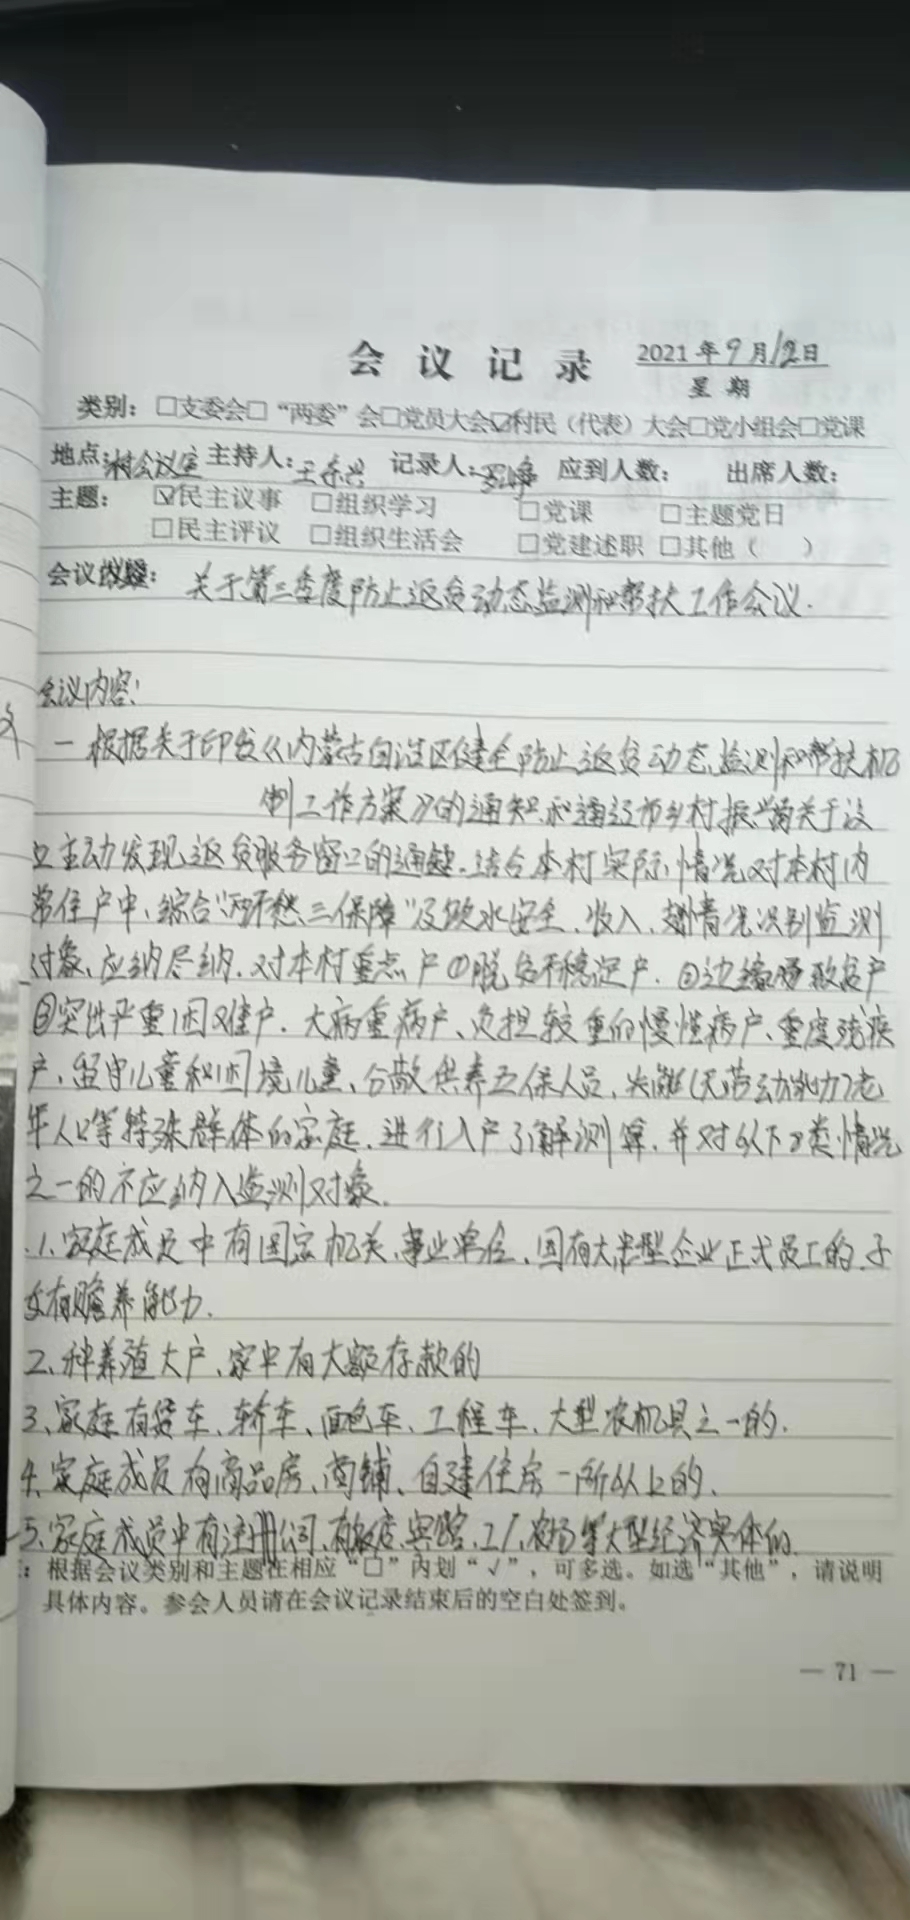 会议记录 2021年9月12日
星期
类别：□支委会□“两委”会□党员大会☑村民（代表）大会□党小组会□党课
地点：村会议室 主持人： 记录人： 应到人数： 出席人数：
主题： ☑民主议事 □组织学习 □党课 □主题党日
□民主评议 □组织生活会 □党建述职 □其他（ ）
会议议题： 关于第三季度防止返贫动态监测和帮扶工作会议.
会议内容：
一 根据关于印发《内蒙古自治区健全防止返贫动态监测和帮扶机
制工作方案》的通知和通辽市乡村振兴局关于设
立主动发现返贫服务窗口的通知.结合本村实际情况对本村内
常住户中、综合“两不愁三保障”及饮水安全、收入、情况识别监测
对象、应纳尽纳.对本村重点户①脱贫不稳定户.②边缘易致贫户
③突出严重困难户.大病重病户、负担较重的慢性病户、重度残疾
户、留守儿童和困境儿童、分散供养五保人员、失能(无劳动能力)老
年人口等特殊群体的家庭.进行入户了解测算.并对以下8类情况
之一的不应纳入监测对象.
1、家庭成员中有国家机关、事业单位、国有大型企业正式员工的.子
女有赡养能力.
2、种养殖大户、家中有大额存款的
3、家庭有货车、轿车、面包车、工程车、大型农机具之一的.
4、家庭成员有商品房、商铺、自建住房一所以上的.
5、家庭成员中有注册公司、有饭店、宾馆、工厂、农场等大型经济实体的.
：根据会议类别和主题在相应“□”内划“√”，可多选。如选“其他”，请说明
具体内容。参会人员请在会议记录结束后的空白处签到。
— 71 —